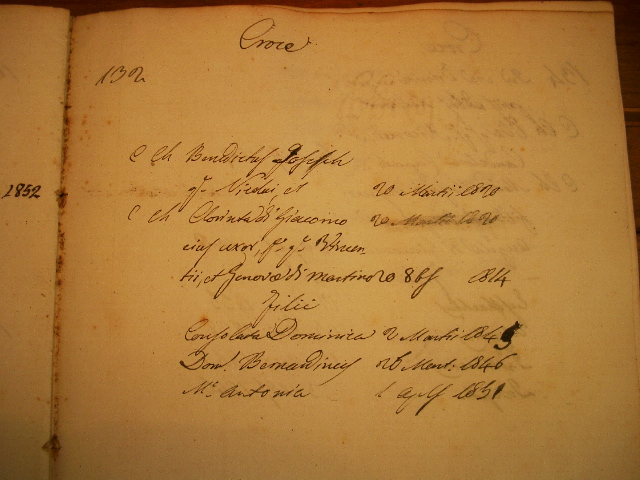 Croce
132
C Ch Benedictus Joseph
1852
q.m Nicolai et 20 Martii 1820
C Ch Clorinta di Giacomo 20 Martii 1820
eius uxor, f.a q.m Vincen
tii, et Genovæ di Martino 20 8bs 1814
Filii
Consolata Dominica 2 Martii 1845
Dom.s Bernardinus 26 Mart: 1846
M.a Antonia 1 Aplis 1851